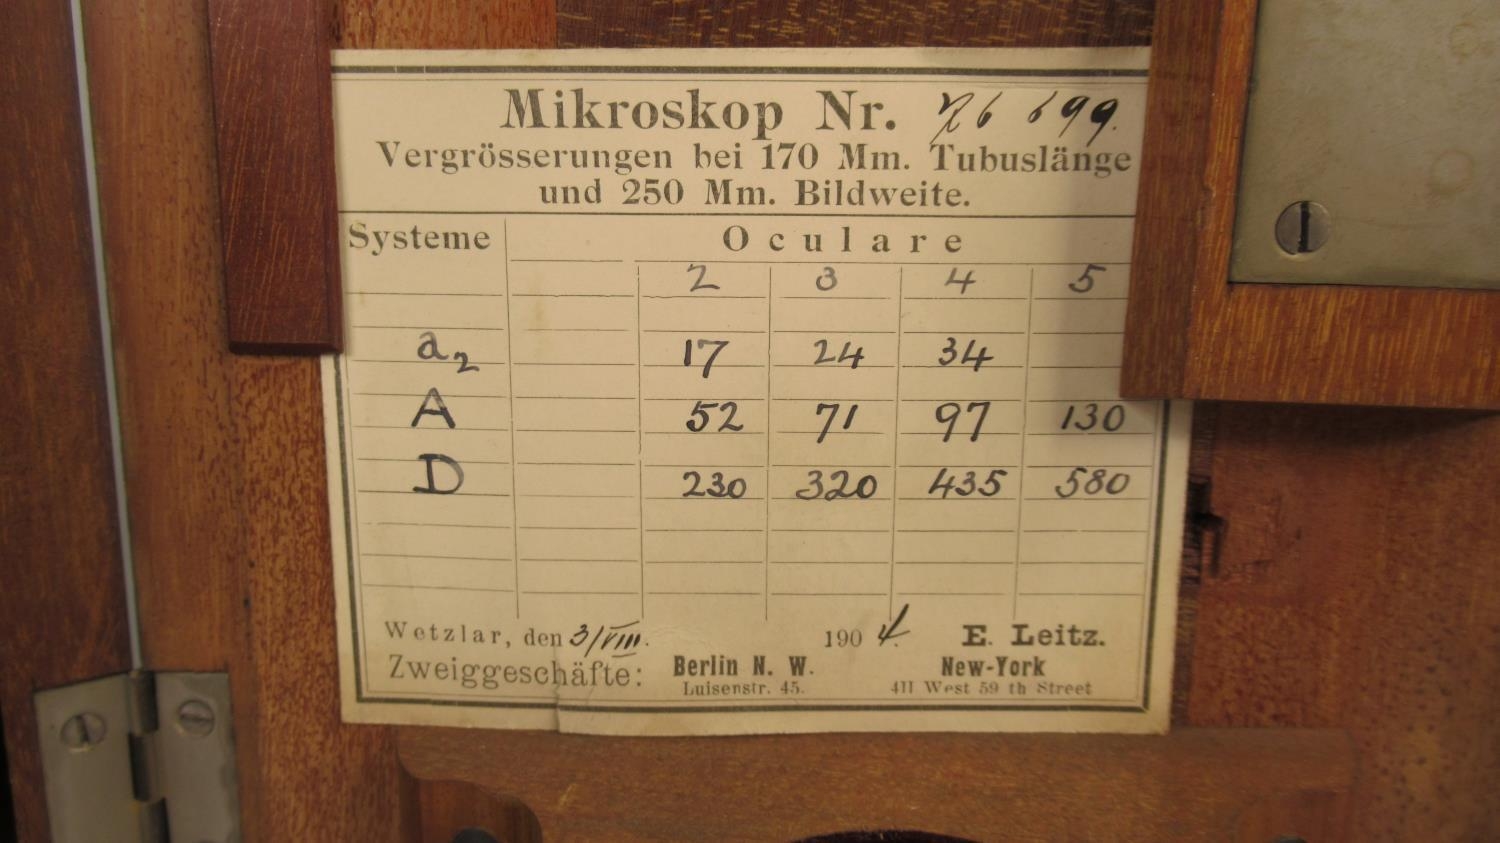 Mikroskop Nr. 76 699.
Vergrösserungen bei 170 Mm. Tubuslänge
und 250 Mm. Bildweite.
Systeme Oculare
2 3 4 5
a2 17 24 34
A 52 71 97 130
D 230 320 435 580
Wetzlar, den 3/VIII. 1904. E. Leitz.
Zweiggeschäfte: Berlin N. W. New-York
Luisenstr. 45. 411 West 59 th Street